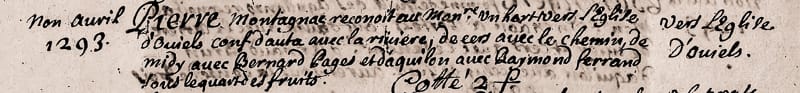 non avril
1293.
Pierre Montagnac reconoit au Manr.e un hort vers l'Eglise
d'oviels conf. d'auta avec la riviere, de cers avec le chemin, de
midy avec Bernard Pages et d'aquilon avec Raymond ferrand
sous le quart des fruits.
Cotté 2 f.
vers l'Eglise
D'oviels.